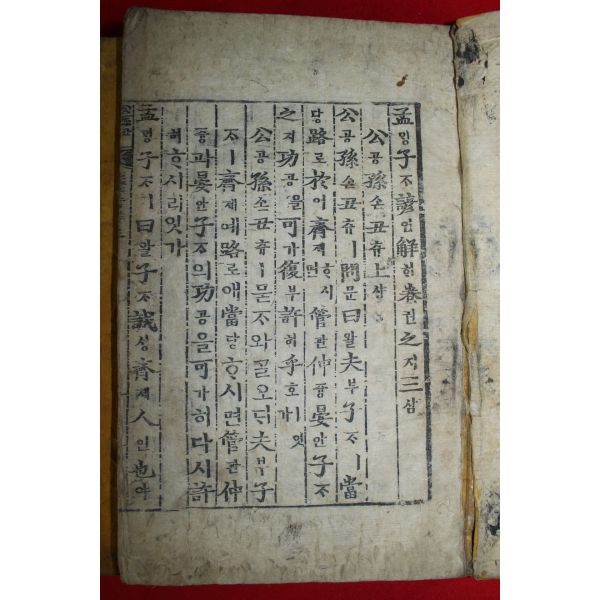 孟ᄆᆡᆼ子ᄌᆞ諺언解ᄒᆡ卷권之지三삼
公공孫손丑츄上샹
公공孫손丑츄ㅣ問문曰왈夫부子ᄌᆞㅣ當
당路로於어齊졔ᄒᆞ시면管관仲듕晏안子ᄌᆞ
之지功공을可가復부許허乎호잇가
公공孫손丑츄ㅣ묻ᄌᆞ와ᄀᆞᆯ오ᄃᆡ夫부子
ᄌᆞㅣ齊졔예路로애當당ᄒᆞ시면管관仲
듕과晏안子ᄌᆞ의功공을可가히다시許
허ᄒᆞ시리잇가
孟ᄆᆡᆼ子ᄌᆞㅣ曰왈子ᄌᆞ誠셩齊졔人인也야